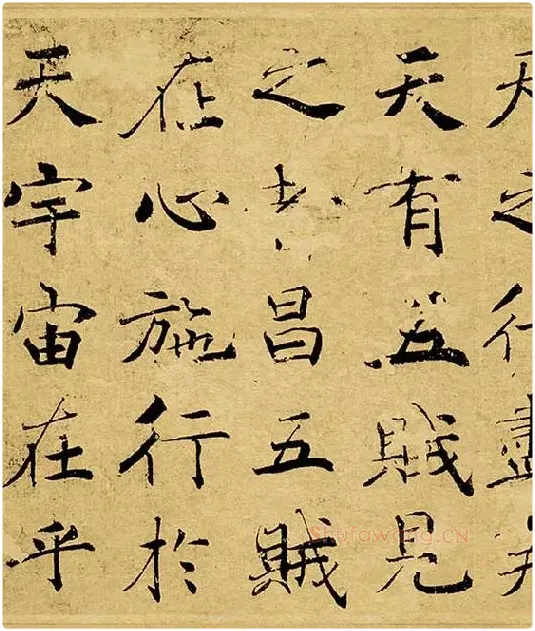 天之行盡矣
天有五賊見
之者昌五賊
在心施行於
天宇宙在乎
Shufawang.CN